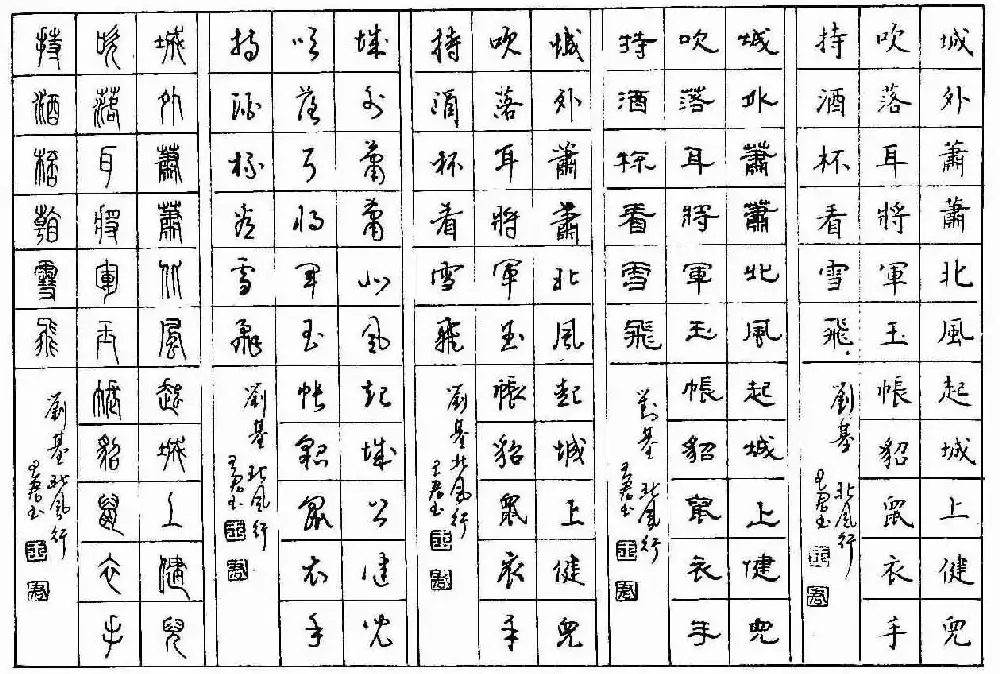 城外蕭蕭北風起城上健兒
吹落耳將軍玉帳貂鼠衣手
持酒杯看雪飛
劉基
北風行
城外蕭蕭北風起城上健兒
吹落耳將軍玉帳貂鼠衣手
持酒杯看雪飛
劉基
北風行
城外蕭蕭北風起城上健兒
吹落耳將軍玉帳貂鼠衣手
持酒杯看雪飛
劉基
北風行
城外蕭蕭北風起城上健兒
吹落耳將軍玉帳貂鼠衣手
持酒杯看雪飛
劉基
北風行
城外蕭蕭北風起城上健兒
吹落耳將軍玉帳貂鼠衣手
持酒杯看雪飛
劉基
北風行